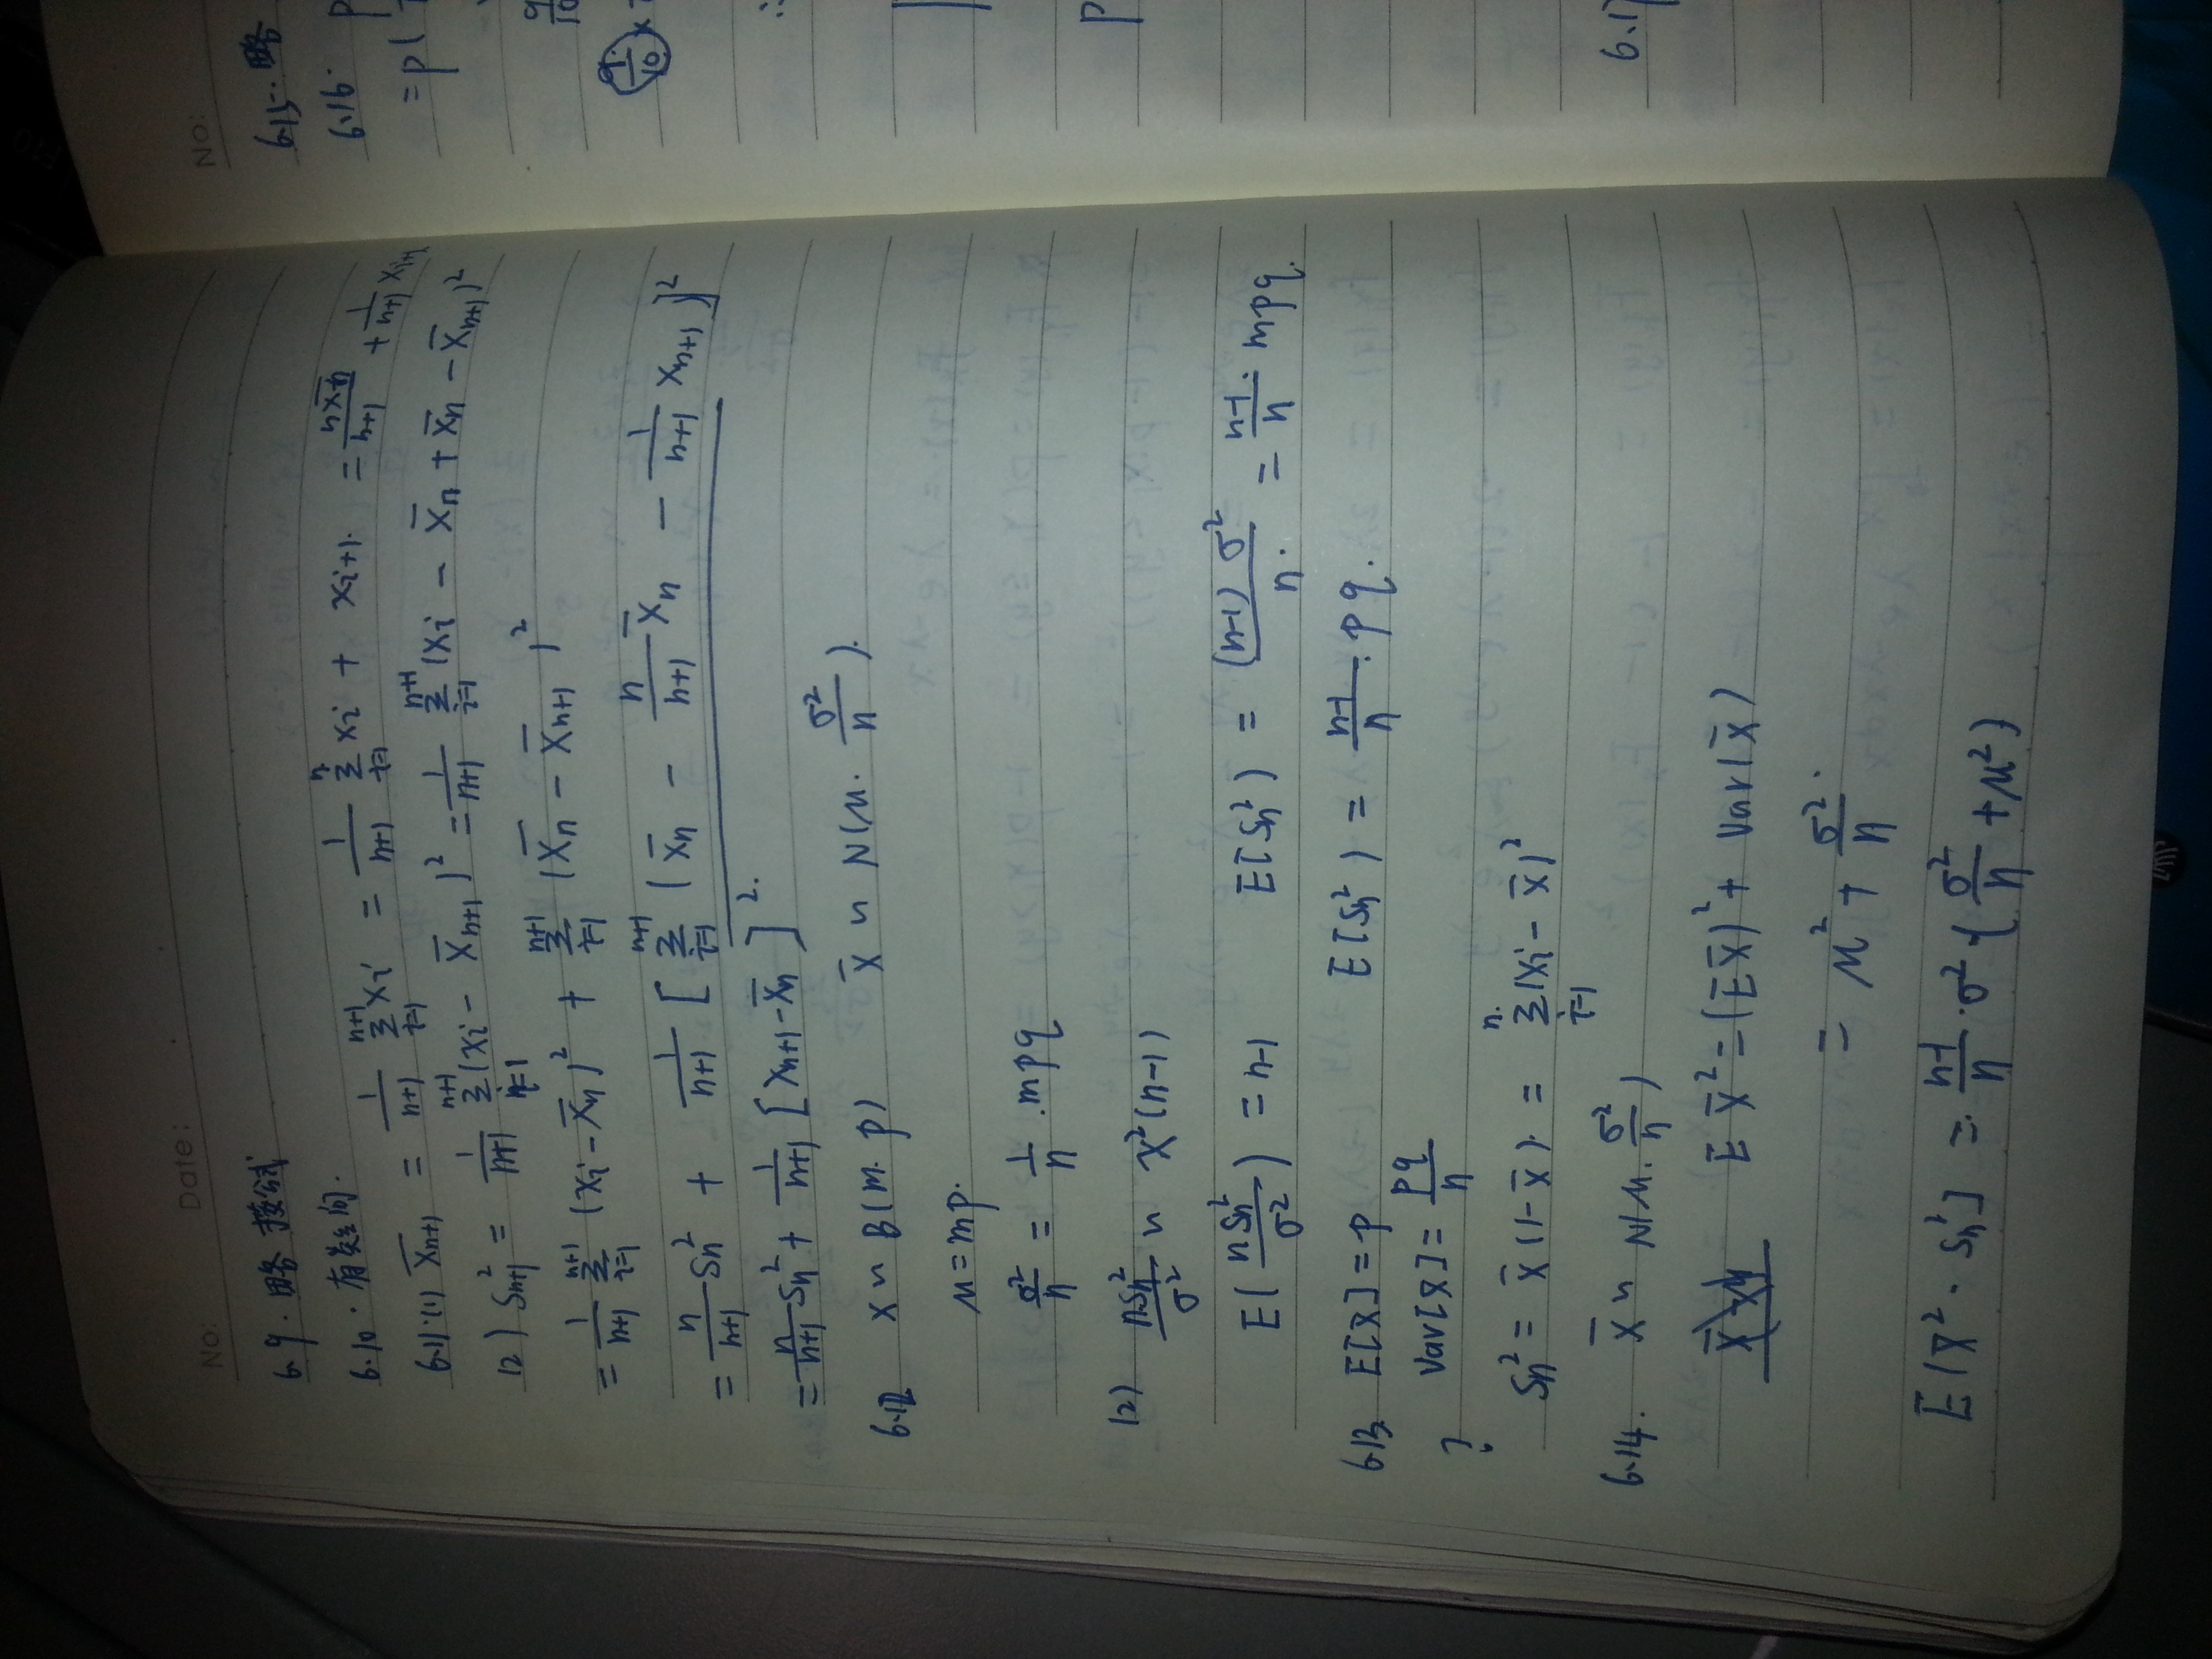 No: Date:
6.9. 略 按公式
6.10. 有疑问.
6.11.(1) X̄n+1 = 1/(n+1) Σ(i=1→n+1) xi = 1/(n+1) Σ(i=1→n) xi + xi+1. = nX̄n/(n+1) + 1/(n+1) xi+1
(2) Sn+1² = 1/(n+1) Σ(i=1→n+1) (xi − X̄n+1)² = 1/(n+1) Σ(i=1→n+1) (xi − X̄n + X̄n − X̄n+1)²
= 1/(n+1) Σ(i=1→n+1) (xi − X̄n)² + Σ(i=1→n+1) (X̄n − X̄n+1)²
= n/(n+1) Sn² + 1/(n+1) [Σ(i=1→n+1) (X̄n − n/(n+1) X̄n − 1/(n+1) xn+1)]²
= n/(n+1) Sn² + 1/(n+1) [xn+1 − X̄n]².
6.12 x ~ B(m. p) X̄ ~ N(μ. σ²/n).
μ = mp.
σ²/n = 1/n . mpq
(2) nSn²/σ² ~ χ²(n−1)
E(nSn²/σ²) = n−1 E[Sn²) = (n−1)σ²/n. = (n−1)/n . mpq.
6.13. E[X̄] = p E[Sn²) = (n−1)/n . pq.
Var[X̄] = pq/n
?
Sn² = X̄(1−X̄). = Σ(i=1→n) (xi − X̄)²
6.14. X̄ ~ N(μ. σ²/n)
E X̄² = (EX̄)² + Var(X̄)
= μ² + σ²/n.
E(X̄² · Sn²] = (n−1)/n · σ² · (σ²/n + μ²)
No:
6.15. 略
6.16. P
= P(
9/10
9/10 ×
∴
P
6.17